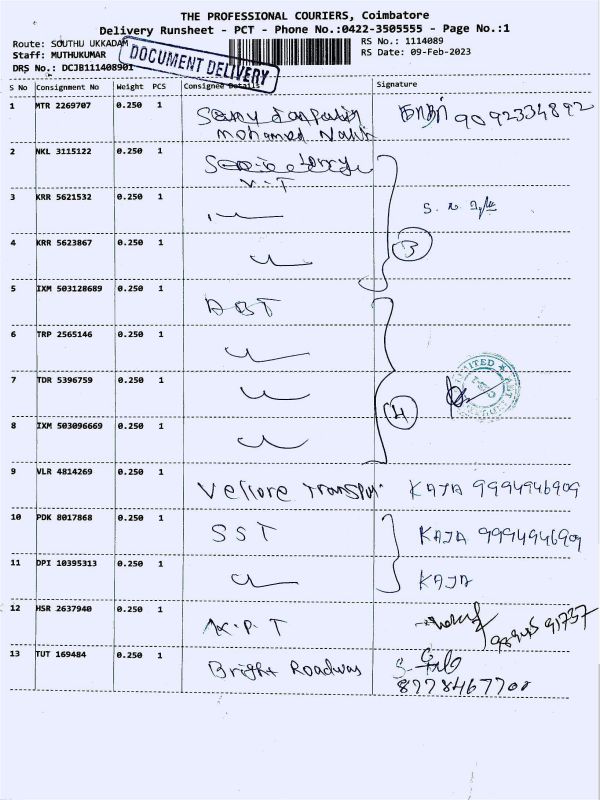 THE PROFESSIONAL COURIERS, Coimbatore
Delivery Runsheet - PCT - Phone No.:0422-3505555 - Page No.:1
Route: SOUTHU UKKADAM
RS No.: 1114089
Staff: MUTHUKUMAR
RS Date: 09-Feb-2023
DRS No.: DCJB111408901
DOCUMENT DELIVERY
S No Consignment No Weight PCS Consignee Details Signature
1 MTR 2269707 0.250 1 9092334892
mohamed
2 NKL 3115122 0.250 1
V.T
3 KRR 5621532 0.250 1
3
4 KRR 5623867 0.250 1
5 IXM 503128689 0.250 1 ABT
6 TRP 2565146 0.250 1
LIMITED ABT
7 TDR 5396759 0.250 1
4
8 IXM 503096669 0.250 1
9 VLR 4814269 0.250 1 Vellore Transport KAJA 9994946909
10 PDK 8017868 0.250 1 SST KAJA 9994946909
11 DPI 10395313 0.250 1 KAJA
12 HSR 2637940 0.250 1 K.P.T
13 TUT 169484 0.250 1 Bright Roadways
8778467700